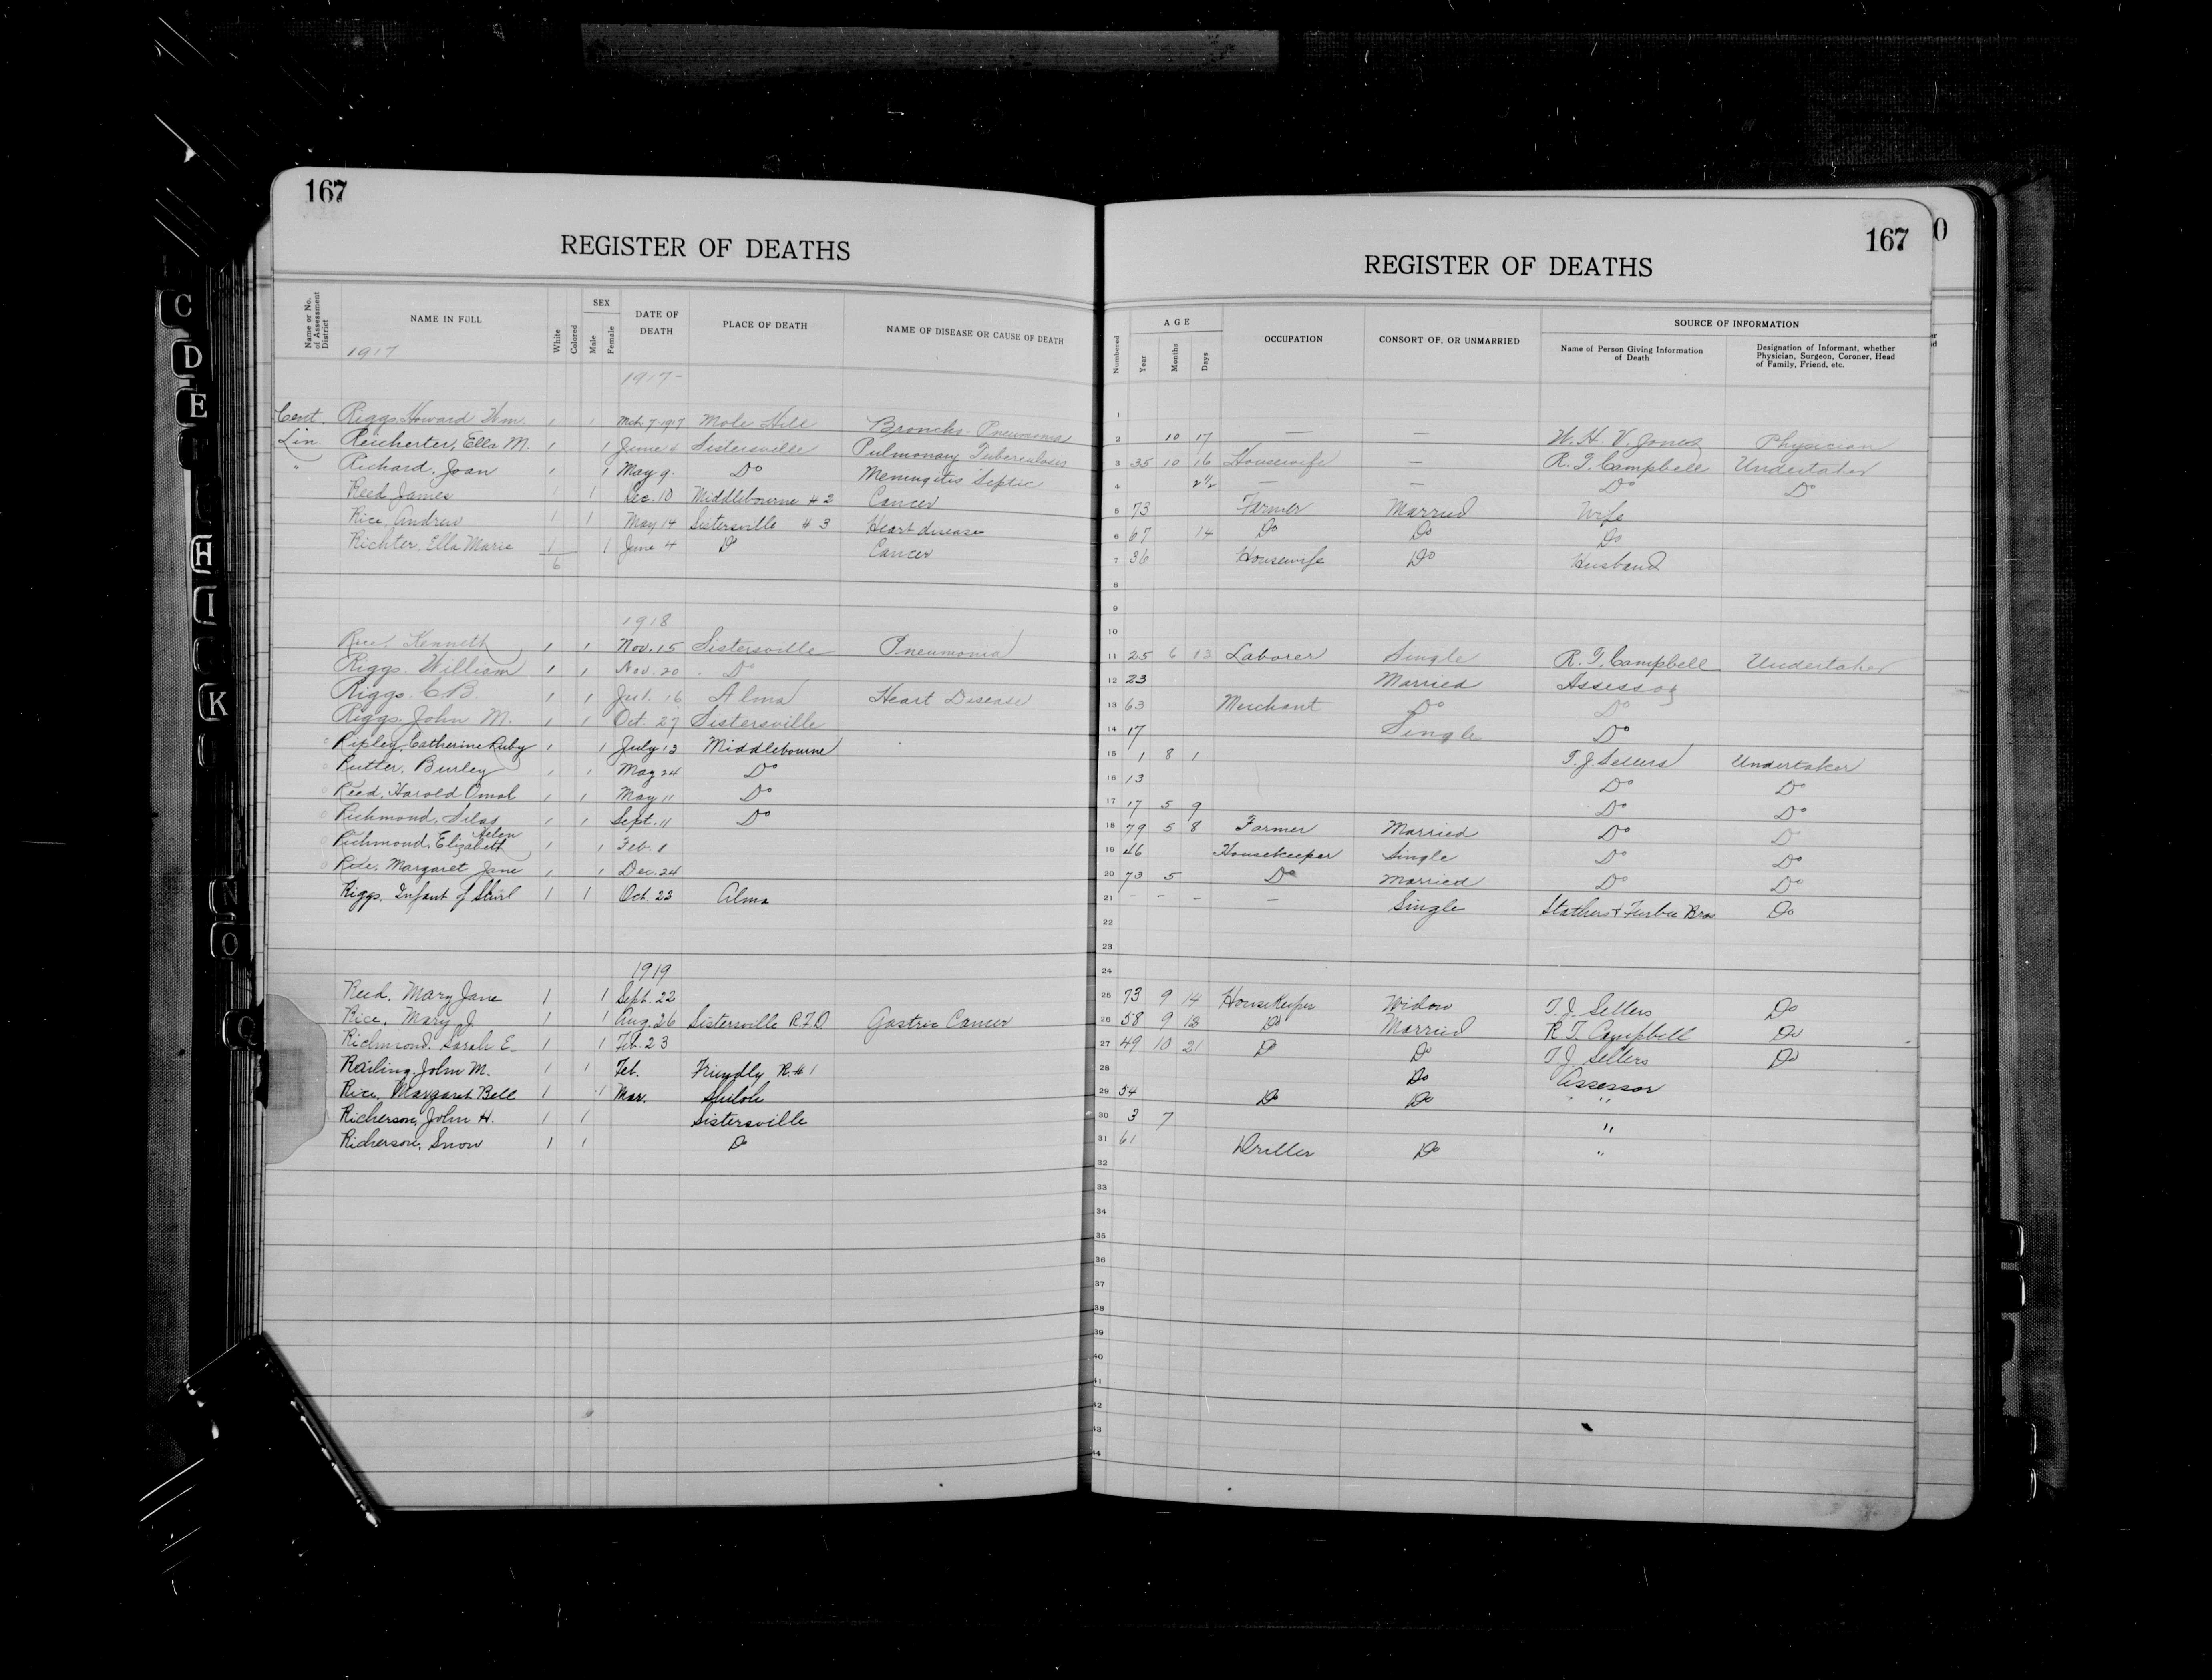 167
REGISTER OF DEATHS
Name or No. of Assessment District NAME IN FULL White Colored SEX Male Female DATE OF DEATH PLACE OF DEATH NAME OF DISEASE OR CAUSE OF DEATH
1917
1917-
Cent. Riggs, Howard Wm. 1 1 Mch 7-1917 Mole Hill Broncho-Pneumonia
Lin. Reicherter, Ella M. 1 1 June 4 Sistersville Pulmonary Tuberculosis
" Richard, Joan 1 1 May 9. Do Meningitis Septic
Reed, James 1 1 Dec. 10 Middlebourne #2 Cancer
Rice, Andrew 1 1 May 14 Sistersville #3 Heart disease
Richter, Ella Marie 1 1 June 4 Do Cancer
6
1918
Rice, Kenneth 1 1 Nov. 15 Sistersville Pneumonia
Riggs, William 1 1 Nov. 20 Do
Riggs, C.B. 1 1 Jul. 16 Alma Heart Disease
Riggs, John M. 1 1 Oct. 27 Sistersville
Ripley, Catherine Ruby 1 1 July 13 Middlebourne
Rutter, Burley 1 1 May 24 Do
Reed, Harold Omal 1 1 May 11 Do
Richmond, Silas 1 1 Sept. 11 Do
Richmond, Elizabeth Helen 1 1 Feb. 1
Margaret Jane 1 1 Dec. 24
Riggs, Infant of 1 1 Oct. 23 Alma
1919
Reed, Mary Jane 1 1 Sept. 22
Rice, Mary J 1 1 Aug. 26 Sistersville R.F.D Gastric Cancer
Richmond, Sarah E. 1 1 Feb. 23
Railing, John M. 1 1 Feb. Friendly R.#1
Rice, Margaret Bell 1 1 Mar. Shiloh
Richerson, John H. 1 1 Sistersville
Richerson, Snow 1 1 Do
167
REGISTER OF DEATHS
Numbered AGE Year Months Days OCCUPATION CONSORT OF, OR UNMARRIED SOURCE OF INFORMATION
Name of Person Giving Information of Death Designation of Informant, whether Physician, Surgeon, Coroner, Head of Family, Friend, etc.
1
2 10 17 — — W. H. V. Jones Physician
3 35 10 16 Housewife — R. T. Campbell Undertaker
4 2½ — — Do Do
5 73 Farmer Married Wife
6 67 14 Do Do Do
7 36 Housewife Do Husband
8
9
10
11 25 6 13 Laborer Single R. T. Campbell Undertaker
12 23 Married Assessor
13 63 Merchant Do Do
14 17 Single Do
15 1 8 1 T. J. Sellers Undertaker
16 13 Do Do
17 17 5 9 Do Do
18 79 5 8 Farmer Married Do Do
19 46 Housekeeper Single Do Do
20 73 5 Do Married Do Do
21 - - - - Single Stathers & Furbee Bros Do
22
23
24
25 73 9 14 HouseKeeper Widow T. J. Sellers Do
26 58 9 18 Do Married R T. Campbell Do
27 49 10 21 Do Do T. J Sellers Do
28 Do Assessor
29 54 Do Do "
30 3 7 "
31 61 Driller Do "
32
33
34
35
36
37
38
39
40
41
42
43
44
C
D
E
H
I
K
N
O
Q